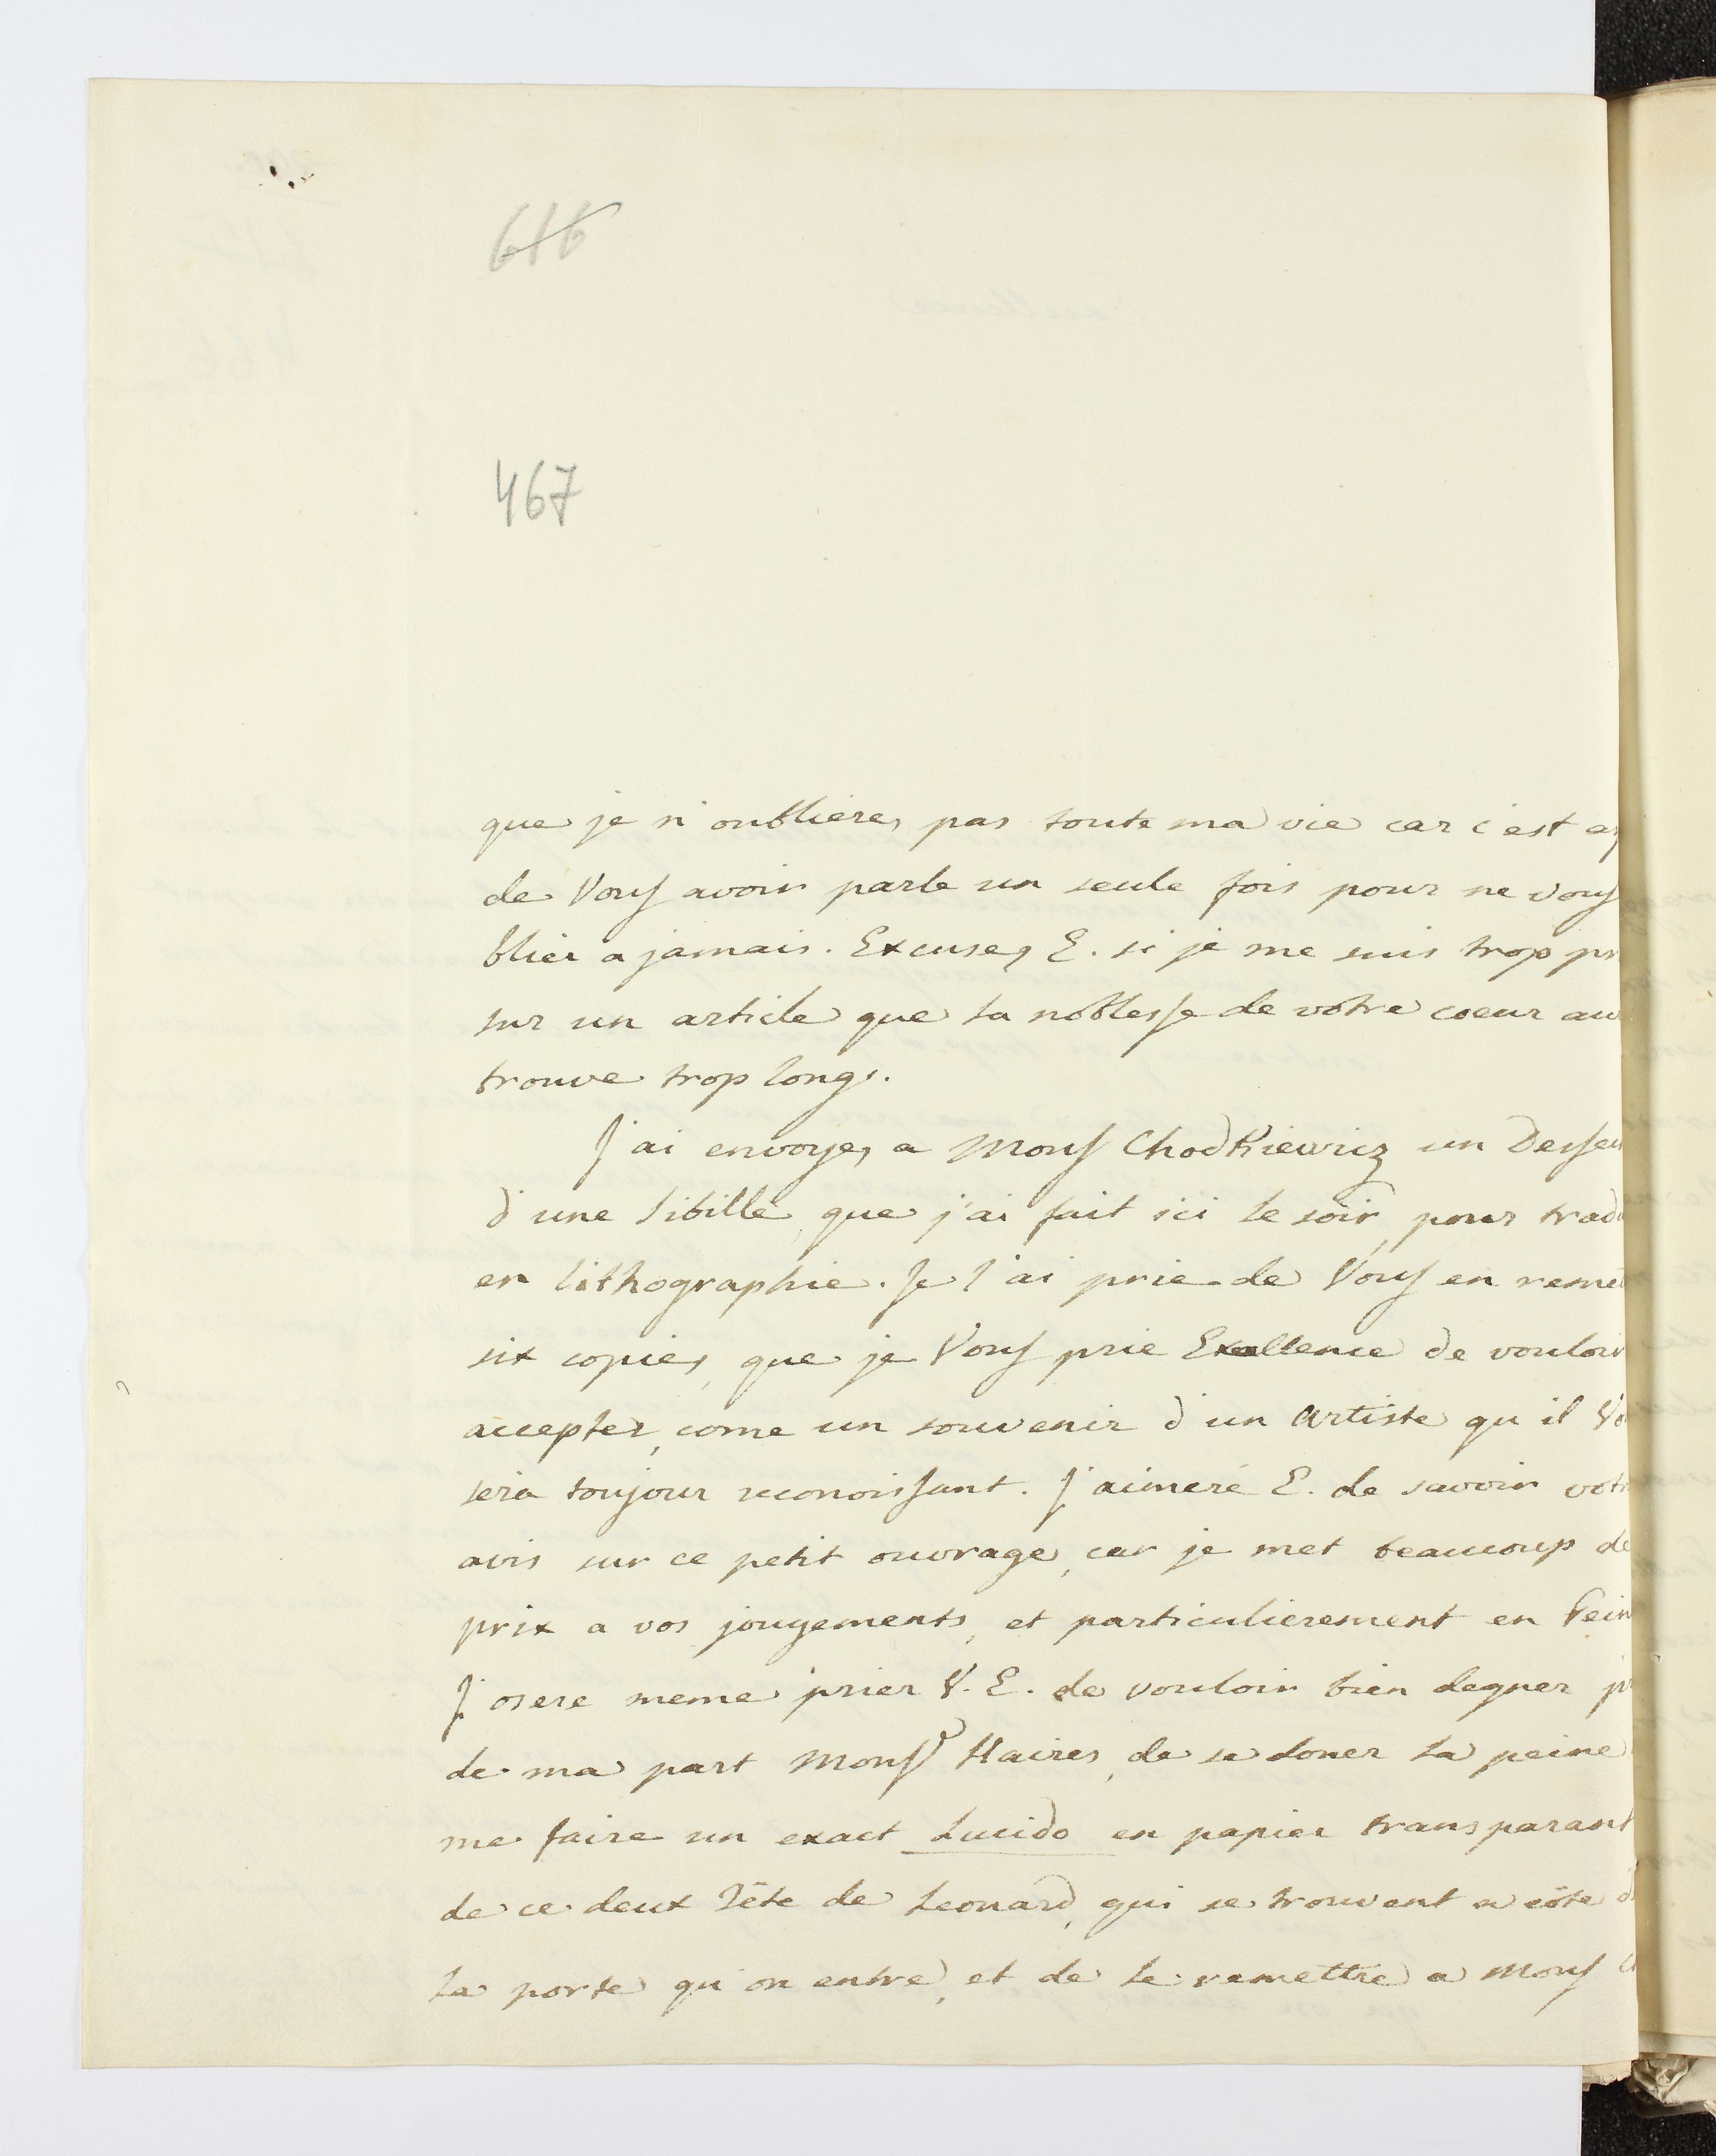 616
467
que je n'oublierez pas toute ma vie car c'est as
de Vous avoir parle un seule fois pour ne vous
blier a jamais. Excusez E. si je me suis trop pr
sur un article que la noblesse de votre coeur au
trouve trop longs.
J'ai envoyez a Mons Chodkiewicz un Dessei
d'une Sibille, que j'ai fait ici le soir, pour tradu
en lithographie. Je l'ai prie de Vous en remet
six copies, que je Vous prie Exellence de vouloir
accepter, come un souvenir d'un Artiste qu'il Vo
sera toujour reconoissant. J'aimere E. de savoir votr
avis sur ce petit ouvrage, car je met beaucoup de
prix a vos jougements, et particulierement en Pein
J'osere meme prier V. E. de vouloir bien degner pr
de ma part Monsr Haires, de se doner la peine
me faire un exact Lucido en papier transparant
de ce deux Tête de Leonard, qui se trouvent a côte d
la porte qu'on entre, et de le remettre a Mons